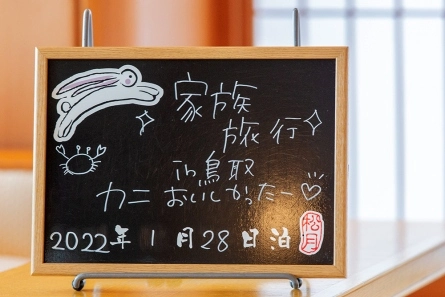 家族
旅行
in鳥取
カニ おいしかったー♡
2022年 1月28日泊
松月